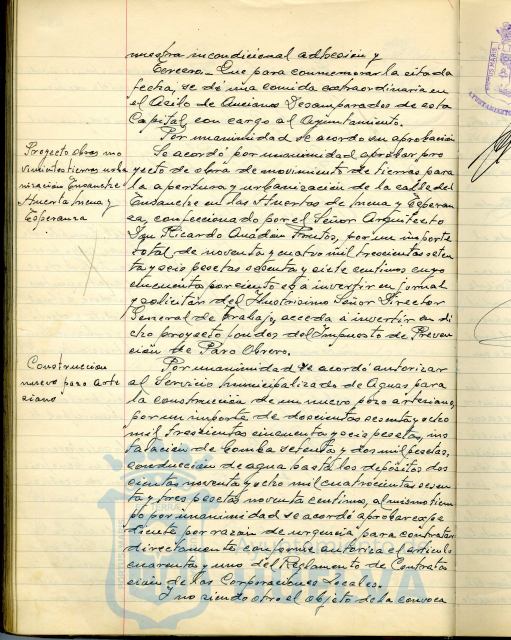 nuestra incondicional adhesión y
Tercero.- Que para conmemorar la citada
fecha, se dé una comida extraordinaria en
el Asilo de Ancianos Desamparados de esta
Capital, con cargo al Ayuntamiento.
Por unanimidad se acordó su aprobación
Proyecto obras mo
vimientos tierras urba
nización Ensanche
Huerta Mena y
Esperanza
Se acordó por unanimidad aprobar pro
yecto de obra de movimiento de tierras para
la apertura y urbanización de la calle del
Ensanche en las Huertas de Mena y Esperan
za, confeccionado por el Señor Arquitecto
Don Ricardo Anadón Frutos, por un importe
total de noventa y cuatro mil trescientas seten
ta y seis pesetas sesenta y siete centimos cuyo
cincuenta por ciento es a invertir en jornal
y solicitar del Ilustrisimo Señor Director
General de Trabajo, acceda a invertir en di
cho proyecto fondos del Impuesto de Preven
ción de Paro Obrero.
Construccion
nuevo pozo arte
siano
Por unanimidad se acordó autorizar
al Servicio Municipalizado de Aguas para
la construcción de un nuevo pozo artesiano,
por un importe de doscientas sesenta y ocho
mil trescientas cincuenta y seis pesetas, ins
talación de bomba setenta y dos mil pesetas,
conducción de agua hasta los depósitos dos
cientas noventa y ocho mil cuatrocientas sesen
ta y tres pesetas noventa centimos, al mismo tiem
po por unanimidad se acordó aprobar expe
diente por razón de urgencia para contratar
directamente conforme autoriza el articulo
cuarenta y uno del Reglamento de Contrata
ción de las Corporaciones Locales.
Y no siendo otro el objeto de la convoca